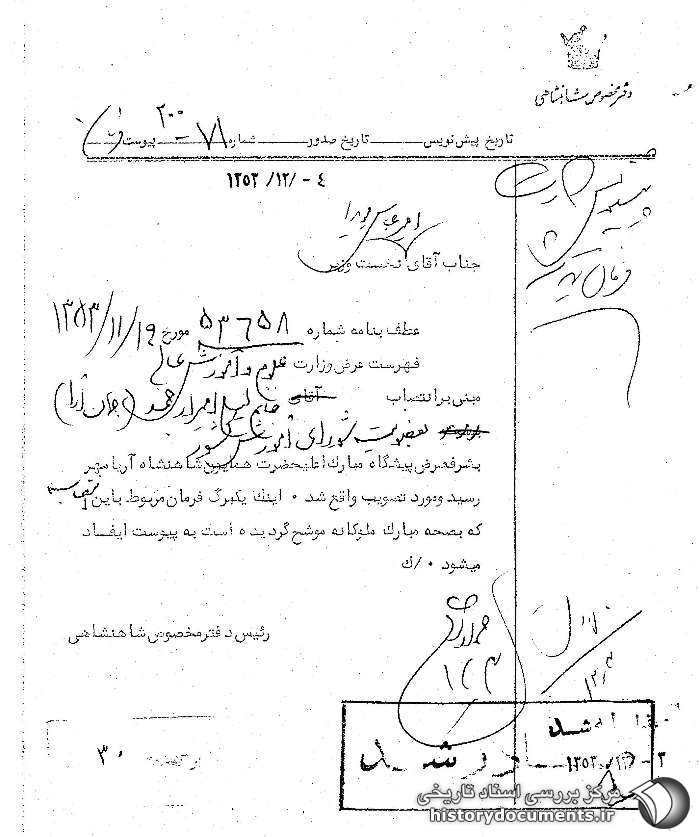 دفتر مخصوص شاهنشاهی
تاریخ پیش‌نویس تاریخ صدور شماره ۷۱-۲۰۰ پیوست
۱۳۵۳/۱۲/-۴
جناب آقای نخست وزیر
عطف بنامه شماره ۵۳۶۵۸ مورخ ۱۳۵۳/۱۱/۱۹
فهرست عرض وزارت علوم و آموزش عالی
مبنی بر انتصاب آقای خانم لیلی امیرارجمند (جهان آرا)
بعضویت شورای آموزش کشور
بشرفعرض پیشگاه مبارک اعلیحضرت همایون شاهنشاه آریامهر
رسید و مورد تصویب واقع شد ۰ اینک یکبرگ فرمان مربوط باین
که بصحه مبارک ملوکانه موشح گردیده است به پیوست ایفاد
میشود ۰/ك
رئیس دفتر مخصوص شاهنشاهی
۱۲/۳
شد
صادر شد
۱۳۵۳/۱۲/-۳
۳۰
مرکز بررسی اسناد تاریخی
historydocuments.ir